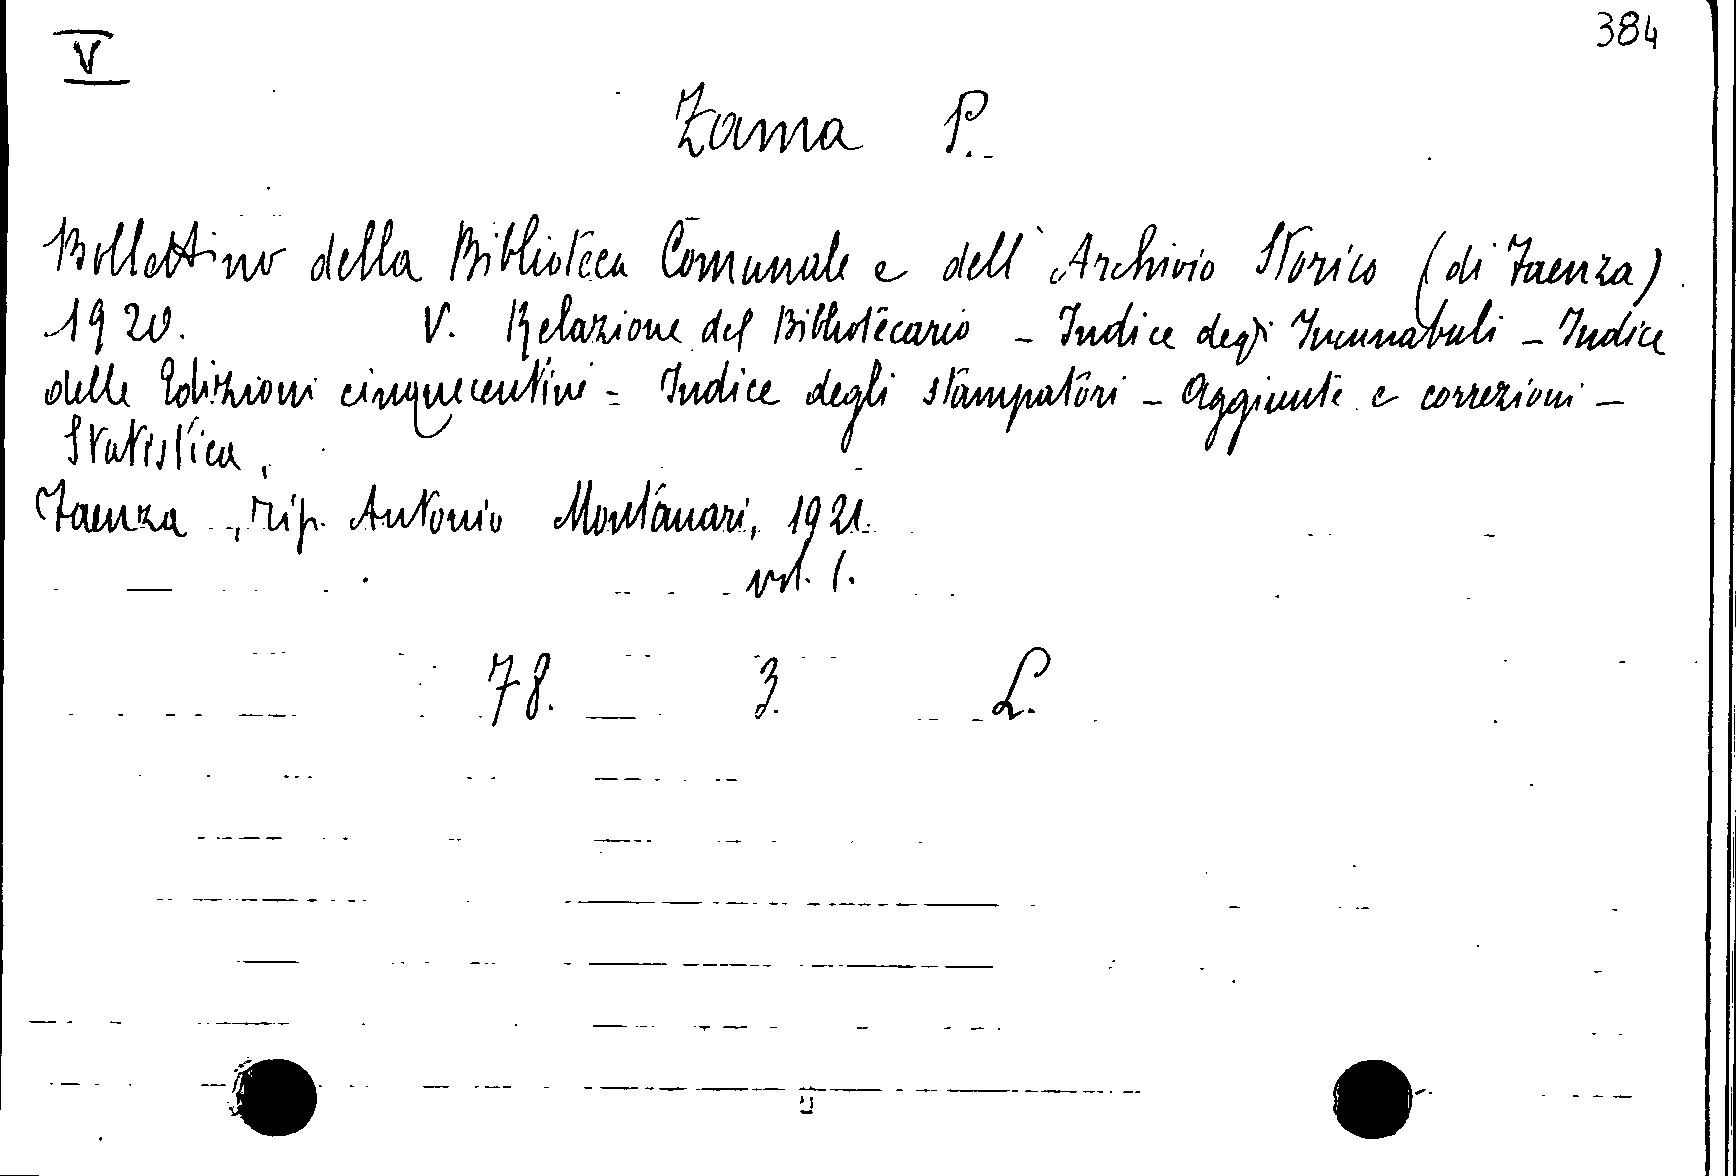 V
384
Zama P.
Bollettino della Biblioteca Comunale e dell'Archivio Storico (di Faenza)
1920. V. Relazione del Bibliotecario - Indice degli Incunabuli - Indice
delle Edizioni cinquecentine - Indice degli stampatori - Aggiunte e correzioni -
Statistica,
Faenza, Tip. Antonio Montanari, 1921.
vol. 1.
78. 3. L.